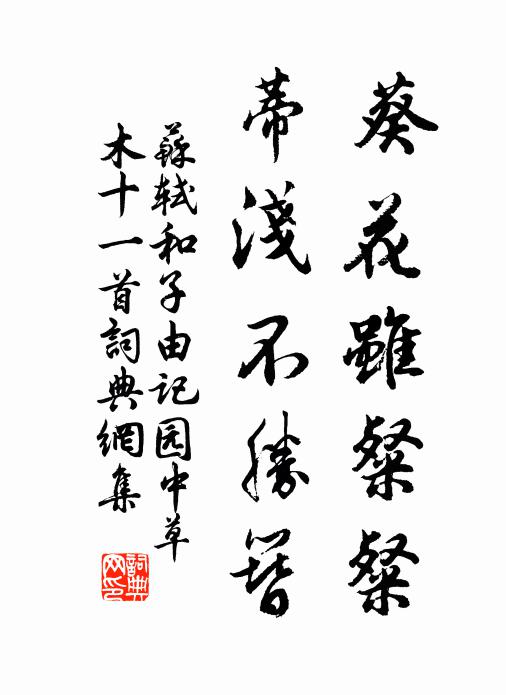 葵花雖粲粲
蒂淺不勝簪
蘇軾和子由记园中草
木十一首詞典網集
詞典
网印